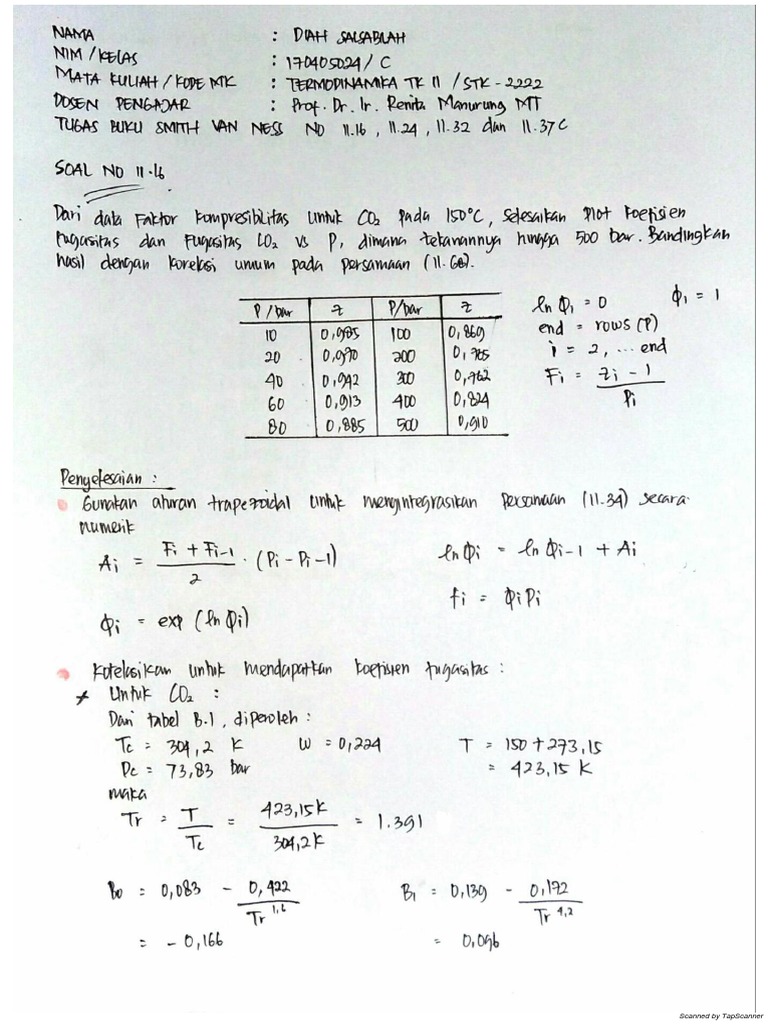 NAMA : DIAH SALSABILAH
NIM / KELAS : 170405024 / C
MATA KULIAH / KODE MK : TERMODINAMIKA TK II / STK - 2222
DOSEN PENGAJAR : Prof. Dr. Ir. Renita Manurung MT
TUGAS BUKU SMITH VAN NESS NO 11.16 , 11.24 , 11.32 dan 11.37C
SOAL NO 11.16
Dari data Faktor kompresibilitas untuk CO2 pada 150°C, selesaikan plot koefisien
fugasitas dan Fugasitas CO2 vs P, dimana tekanannya hingga 500 bar. Bandingkan
hasil dengan korelasi umum pada persamaan (11.68).
P/bar z P/bar z
10 0,985 100 0,869
20 0,970 200 0,765
40 0,942 300 0,762
60 0,913 400 0,824
80 0,885 500 0,910
ln Φ1 = 0 Φ1 = 1
end = rows (P)
i = 2, ... end
Fi = zi - 1 / Pi
Penyelesaian :
Gunakan aturan trapezoidal untuk mengintegrasikan Persamaan (11.34) secara
numerik
Ai = Fi + Fi-1 / 2 . (Pi - Pi-1) ln Φi = ln Φi-1 + Ai
Φi = exp (ln Φi) fi = Φi Pi
Korelasikan untuk mendapatkan koefisien fugasitas :
* Untuk CO2 :
Dari tabel B.1, diperoleh :
Tc = 304,2 K W = 0,224 T = 150 + 273,15
Pc = 73,83 bar = 423,15 K
maka
Tr = T / Tc = 423,15K / 304,2K = 1.391
B0 = 0,083 - 0,422 / Tr 1,6 B1 = 0,139 - 0,172 / Tr 4,2
= - 0,166 = 0,096
Scanned by TapScanner